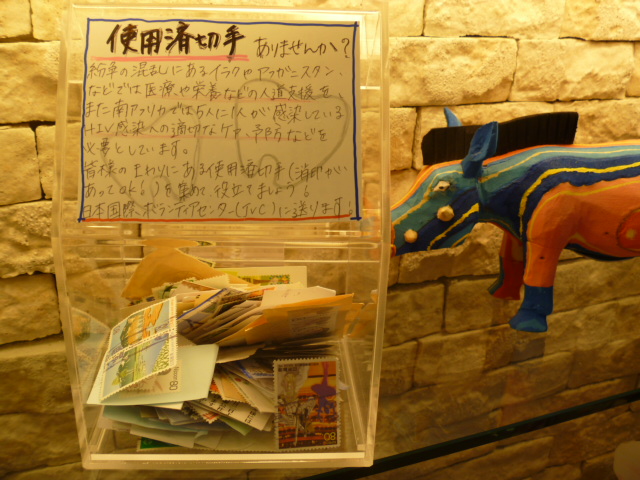 使用済切手 ありませんか?
紛争の混乱にあるイラクやアフガニスタン、
などでは医療や栄養などの人道支援を
また南アフリカでは5人に1人が感染している
HIV感染への適切なケア、予防などを
必要としています。
皆様のまわりにある使用済切手(消印が
あってOK!)を集めて役立てましょう!
日本国際ボランティアセンター(JVC)に送ります!
80
80